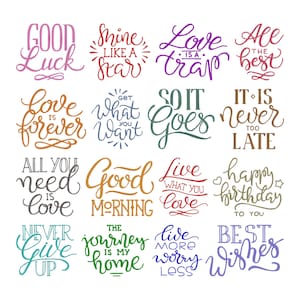 GOOD
Luck
Shine
LIKE A
Star
Love
IS A
trap
All
THE
best
love
IS
forever
GET
What
you
Want
SO IT
Goes
IT IS
Never
TOO
LATE
ALL YOU
need
IS
love
Good
MORNING
Live
WHAT YOU
Love
happy
birthday
TO YOU
NEVER
Give
UP
THE
journey
IS MY
home
live
MORE
worry
LESS
BEST
Wishes